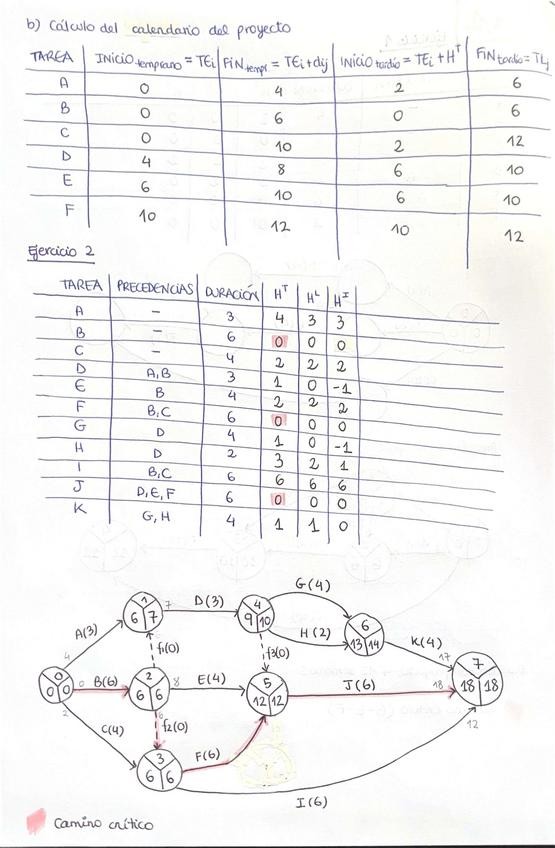 b) Cálculo del calendario del proyecto
TAREA INICIO temprano = TEi FiN tempr = TEi + dij INICIO tardío = TEi + H^T FiN tardío = TLj
A 0 4 2 6
B 0 6 0 6
C 0 10 2 12
D 4 8 6 10
E 6 10 6 10
F 10 12 10 12
Ejercicio 2
TAREA PRECEDENCIAS DURACIÓN H^T H^L H^I
A - 3 4 3 3
B - 6 0 0 0
C - 4 2 2 2
D A,B 3 1 0 -1
E B 4 2 2 2
F B,C 6 0 0 0
G D 4 1 0 -1
H D 2 3 2 1
I B,C 6 6 6 6
J D,E,F 6 0 0 0
K G,H 4 1 1 0
G(4)
1 7 D(3) 4
6 7 9 10 6
A(3) H(2) 13 14 K(4)
4 f1(0) f3(0) 17 7
0 0 B(6) 2 8 E(4) 5 J(6) 18 18 18
0 0 6 6 12 12
2 6 f2(0) 12
C(4) 3 F(6)
6 6
I(6)
Camino crítico